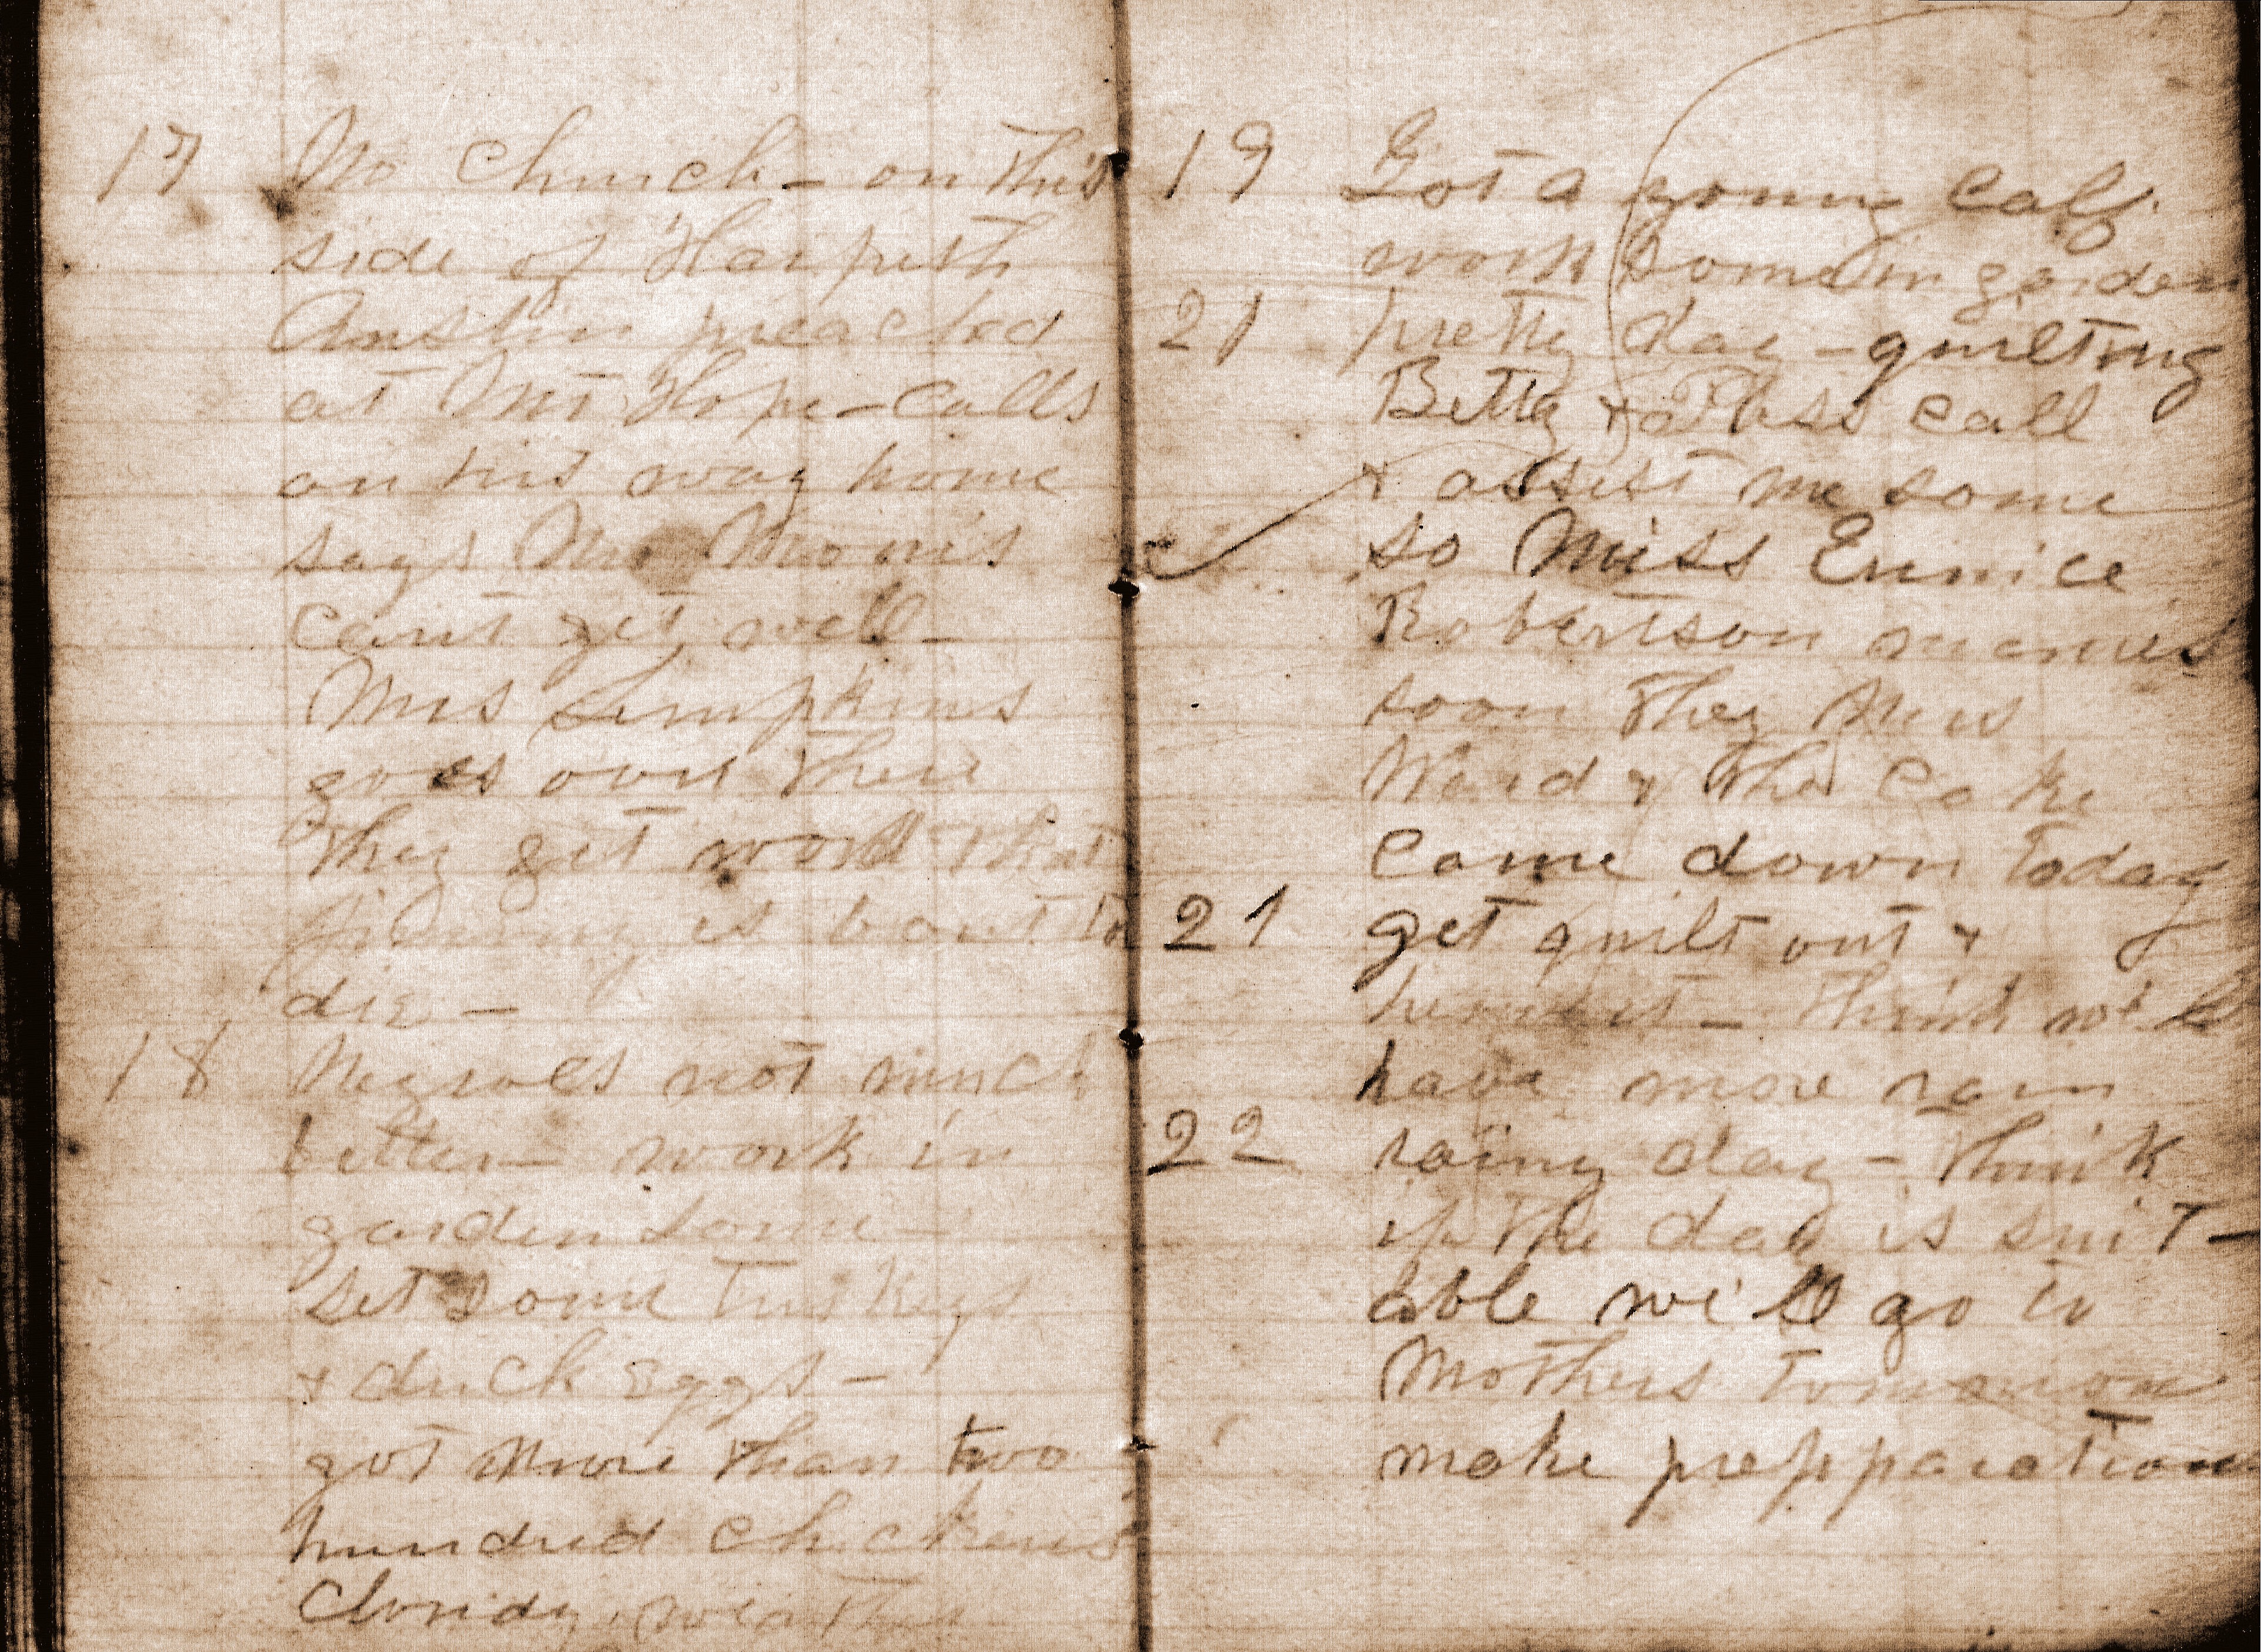 17 No church – on this
side of Harpeth
Austin preached
at Mt Hope – calls
on his way home
says Mr Morris
cant get well –
Mrs Simpkins
goes over there
They get word that
is bout to
die –
18 Negroes not much
better – work in
garden some –
set some turkeys
& duck eggs –
got more than two
hundred chickens
Cloudy weather
19 Got a young calf.
work some in garden
21 pretty day – quilting
Betty & Puss call
& assist me some
so Miss Eunice
Robertson marries
soon They
Ward & the Cake
came down today
21 get quilt out &
hem it – think will
have more rain
22 rainy day – think
if the day is suit–
able will go to
Mothers tomorrow
make prepparations